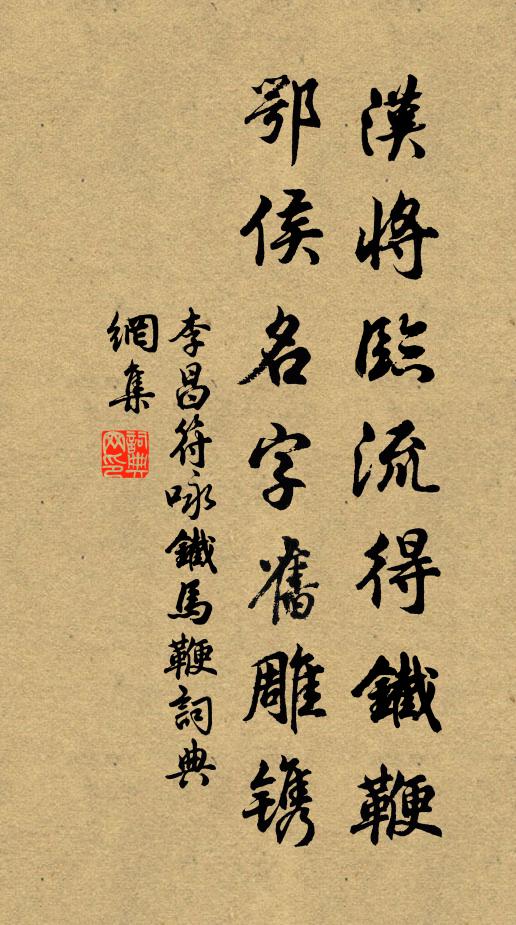 漢將臨流得鐵鞭
鄂侯名字舊雕鎸
李昌符咏鐵馬鞭詞典
網集
詞典網印